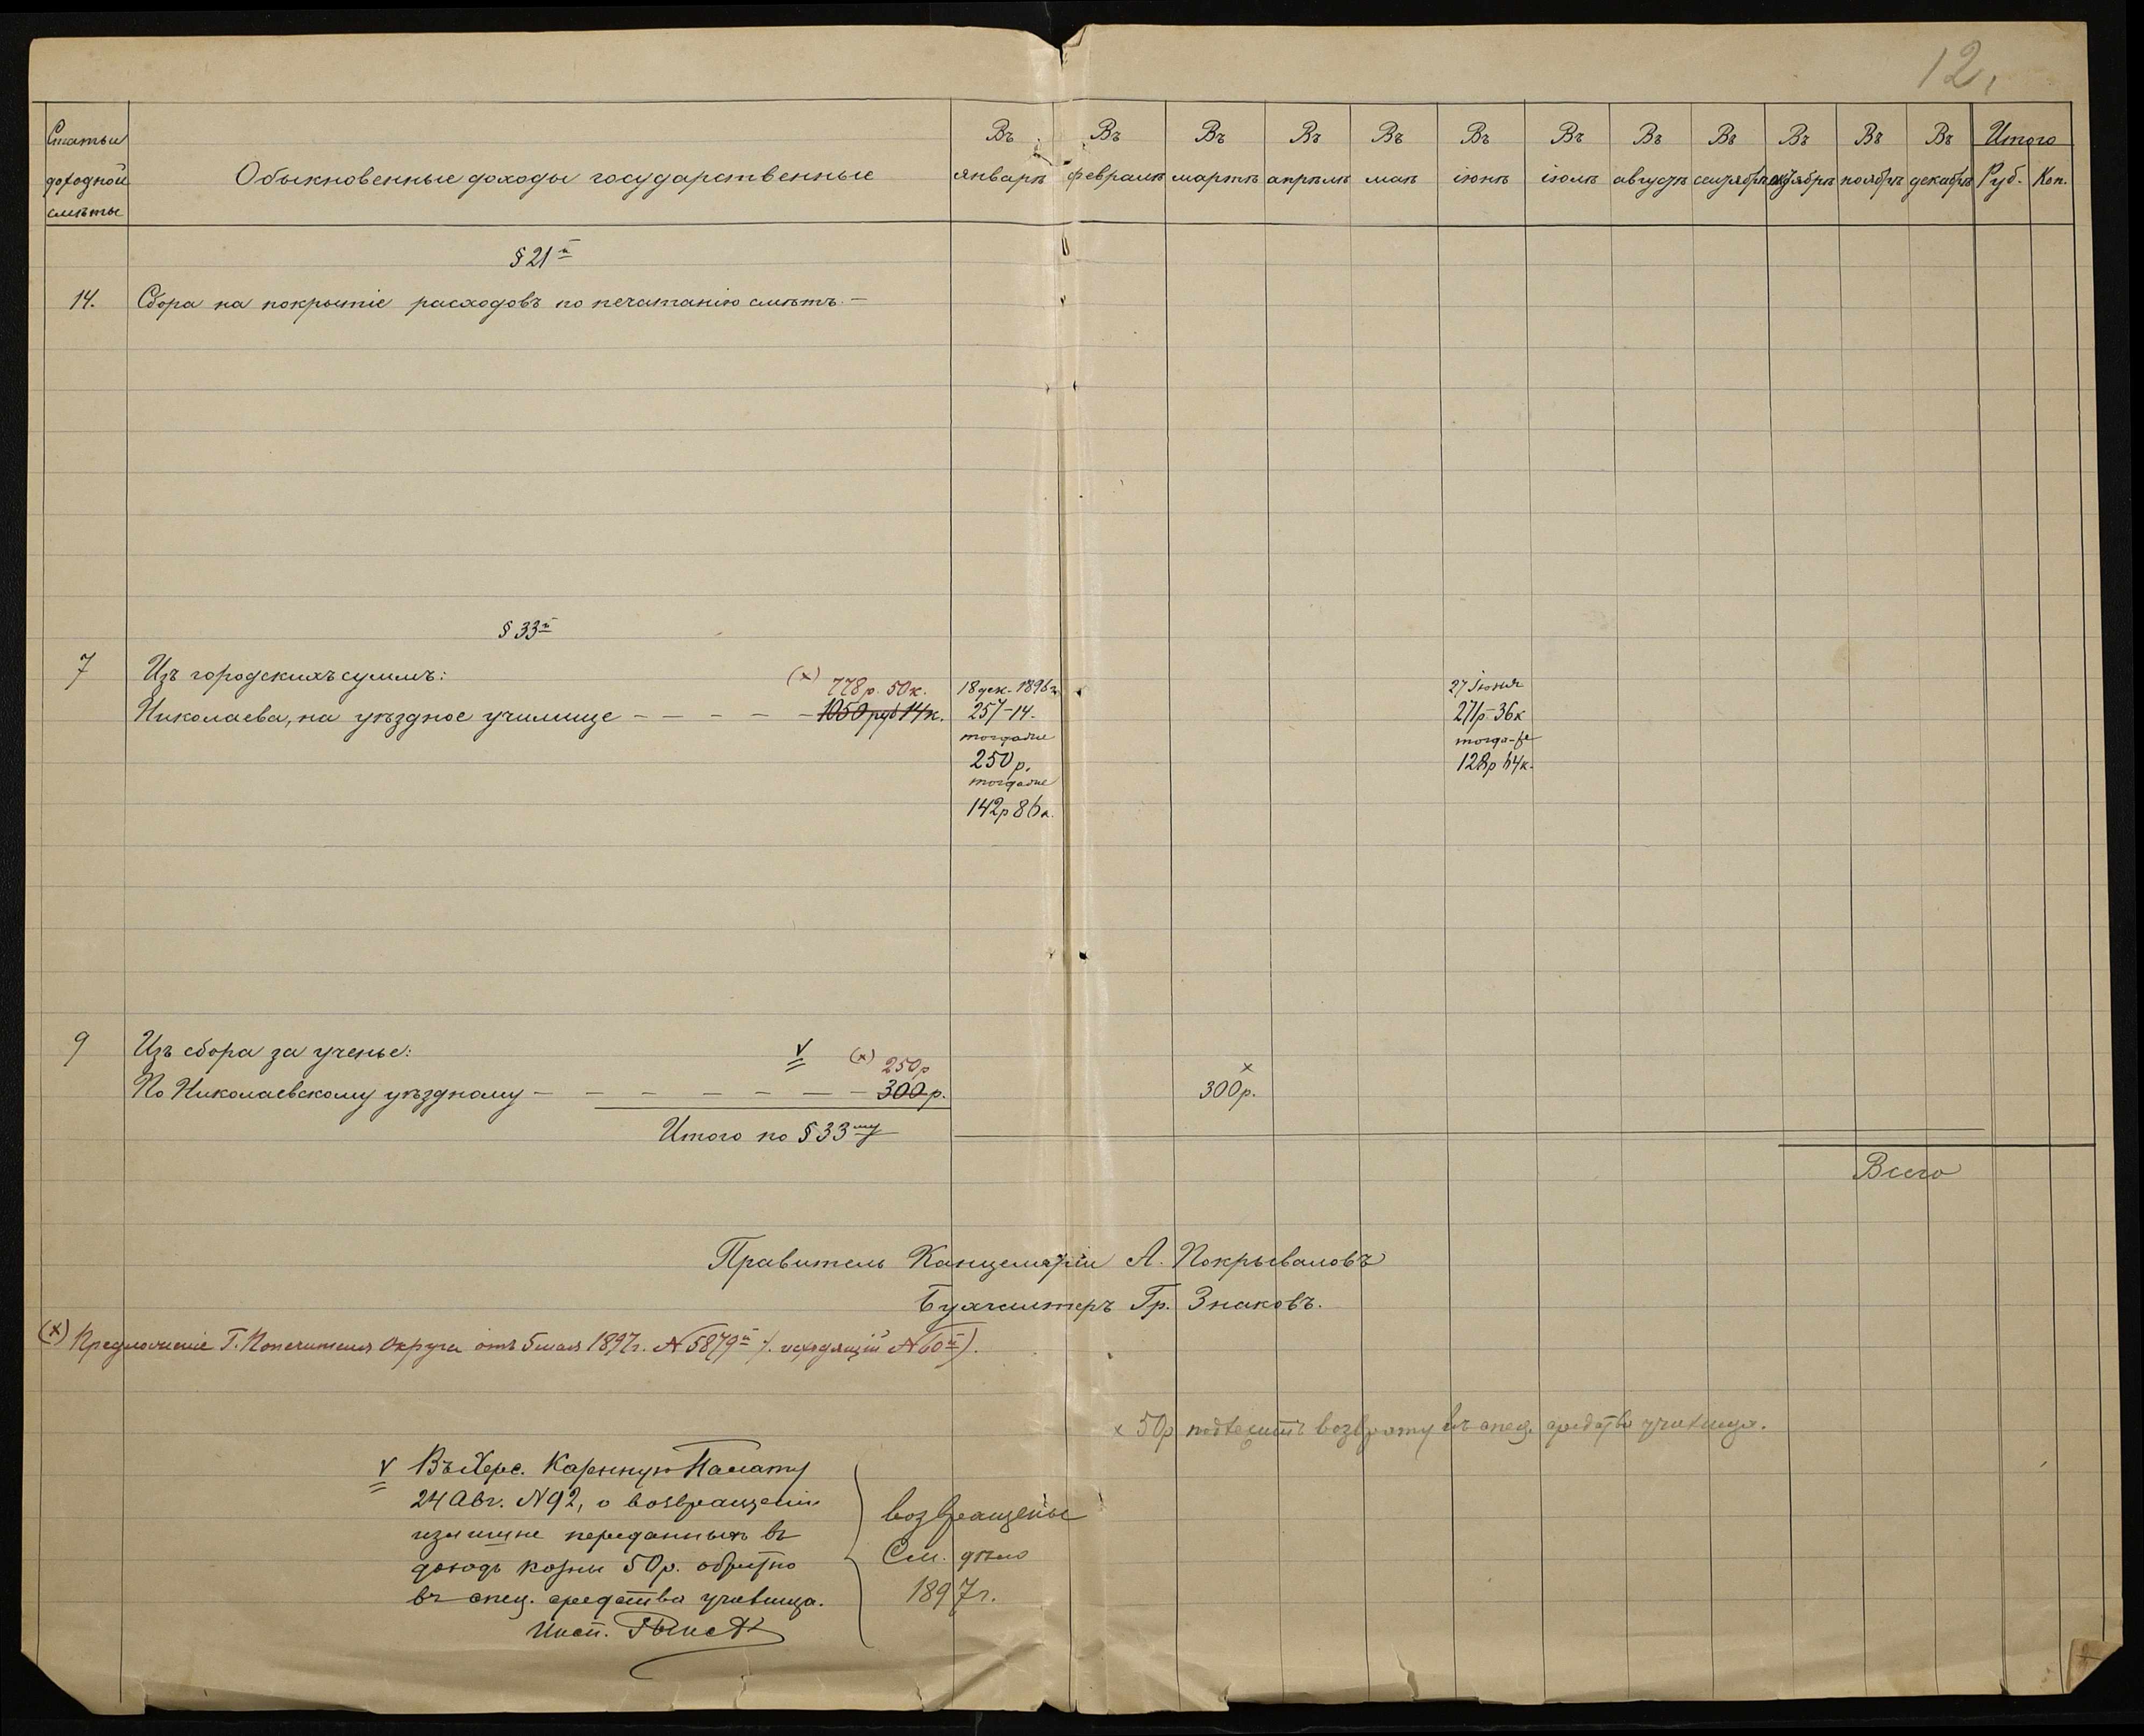 12.
Статьи доходной смѣты
Обыкновенные доходы государственные
Въ январѣ
Въ февралѣ
Въ мартѣ
Въ апрѣлѣ
Въ маѣ
Въ іюнѣ
Въ іюлѣ
Въ августѣ
Въ сентябрѣ
Въ октябрѣ
Въ ноябрѣ
Въ декабрѣ
Итого
Руб. Коп.
§ 21й
14. Сбора на покрытіе расходовъ по печатанію смѣтъ. —
§ 33й
7 Изъ городскихъ суммъ:
(х) 778р. 50к. 18 дек. 1896 г. 27 Іюня
Николаева, на уѣздное училище — — — — — 1050 руб 14к. 257-14. 271р-36к
тогда же тогда-же
250 р. 128р 64к.
тогда же
142р 86к.
9 Изъ сбора за ученье: V (х) 250р х
По Николаевскому уѣздному — — — — — — — 300 р. 300р.
Итого по § 33му
Всего
Правитель Канцеляріи А. Покрываловъ
Бухгалтеръ Гр. Знаковъ.
(х) Предложеніе Г. Попечителя Округа отъ 5 мая 1897 г. № 5879й /. исходящій № 60й).
х 50р подлежитъ возврату въ спец. средства училища.
V Въ Херс. Казенную Палату
24 Авг. № 92, о возвращеніи
излишне переданныхъ въ
доходъ казны 50р. обратно
въ спец. средства училища.
Инсп.
возвращены
См. дѣло
1897 г.